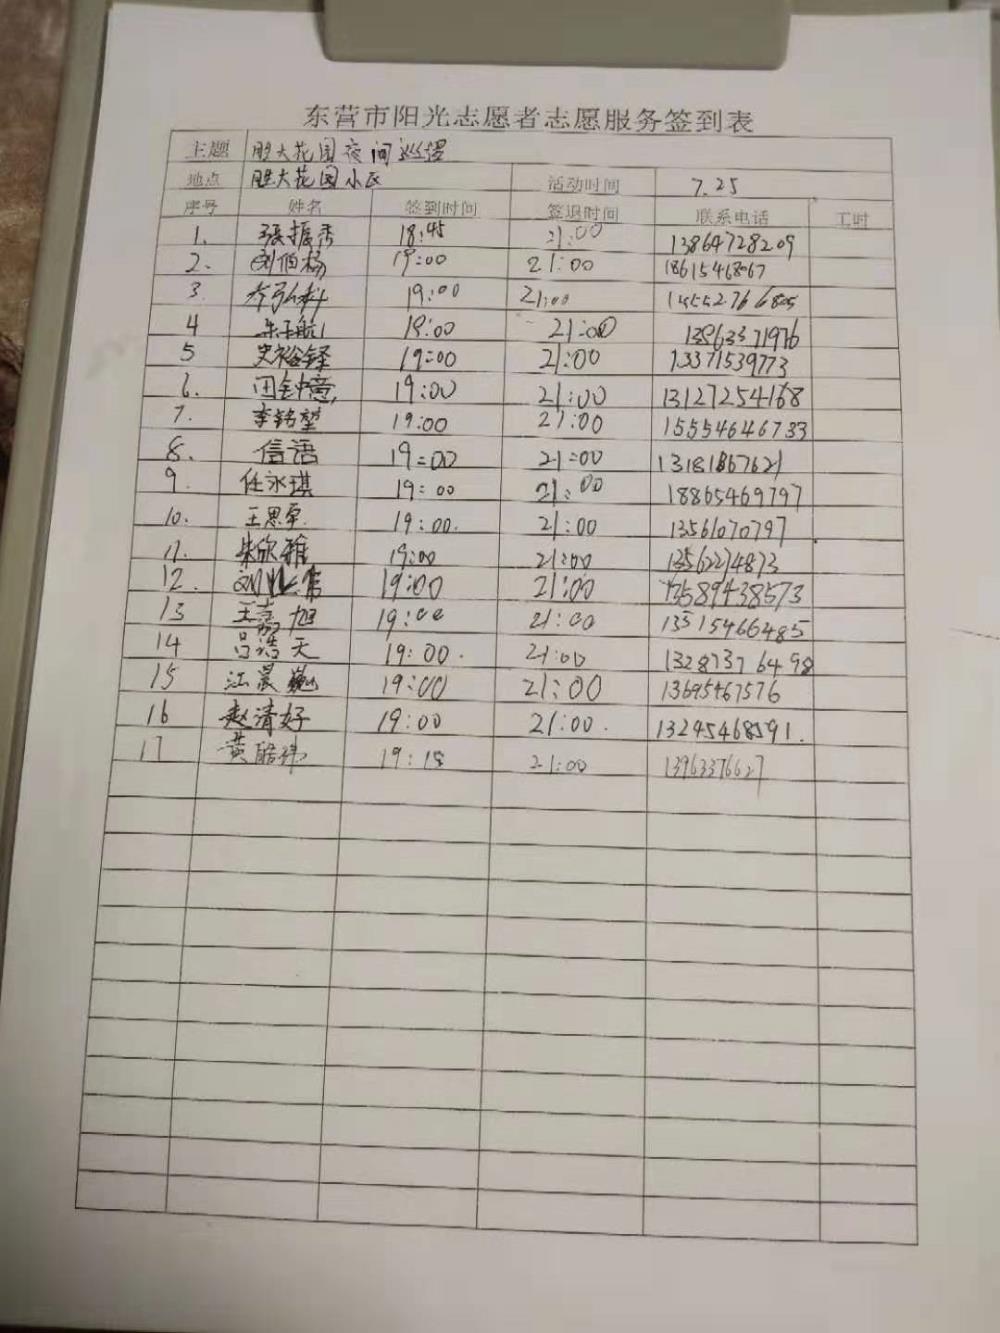 东营市阳光志愿者志愿服务签到表
主题 胜大花园夜间巡逻
地点 胜大花园小区 活动时间 7.25
序号 姓名 签到时间 签退时间 联系电话 工时
1. 张振秀 18:45 21:00 13864728209
2. 刘伯杨 19:00 21:00 18615468067
3 19:00 21:00
4 19:00 21:00 13963371976
5 史裕铎 19:00 21:00 13371539773
6. 田钟意 19:00 21:00 13127254168
7. 李铭堃 19:00 21:00 15554646733
8. 信语 19:00 21:00 13181867621
9. 任永琪 19:00 21:00 18865469797
10. 王思 19:00. 21:00 13561070797
11. 朱欣雅 19:00 21:00 13562274873
12. 19:00 21:00 13589438573
13 王嘉旭 19:00 21:00 13515466485
14 吕浩天 19:00. 21:00 13287376498
15 江晨巍 19:00 21:00 13695467576
16 赵清好 19:00 21:00. 13245468591.
17 黄皓祎 19:15 21:00 13963376627